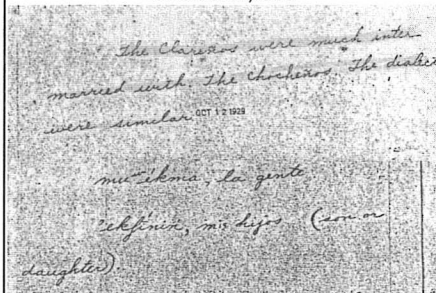 The Clareños were much inter
married with. The Chocheños. The dialects
were similar OCT 12 1929
la gente
mis hijos (son or
daughter).